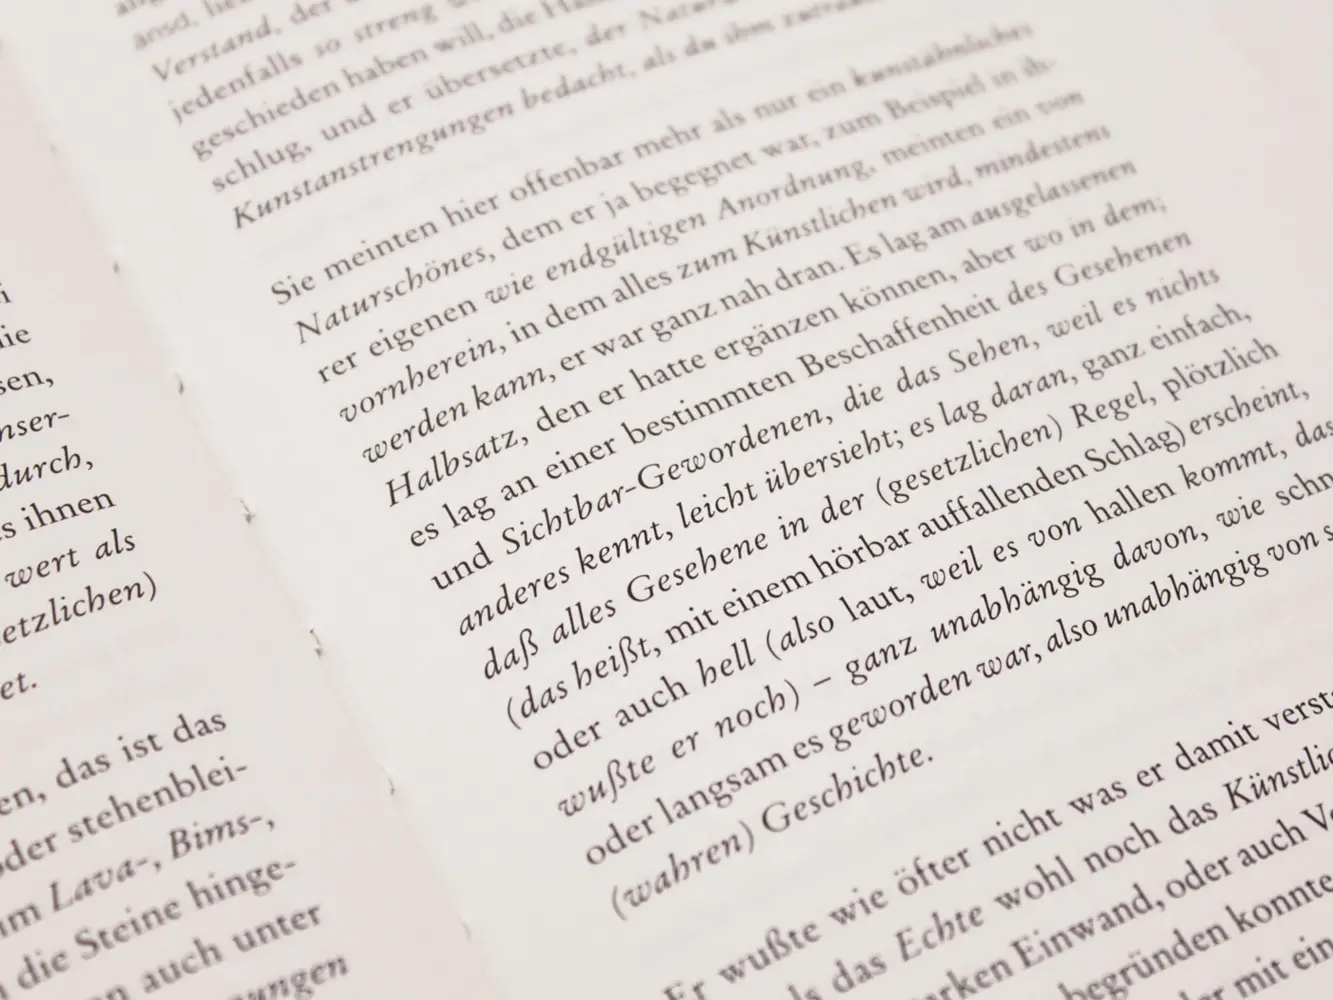 i
ie
sen,
nser-
durch,
s ihnen
wert als
etzlichen)
et.
en, das ist das
oder stehenblei-
im Lava-, Bims-,
die Steine hinge-
auch unter
ungen
ansd,
Verstand, der
jedenfalls so streng
geschieden haben will, die
schlug, und er übersetzte, der
Kunstanstrengungen bedacht, als du ihm
Sie meinten hier offenbar mehr als nur ein kunstähnliches
Naturschönes, dem er ja begegnet war, zum Beispiel in ih-
rer eigenen wie endgültigen Anordnung, meinten ein von
vornherein, in dem alles zum Künstlichen wird, mindestens
werden kann, er war ganz nah dran. Es lag am ausgelassenen
Halbsatz, den er hatte ergänzen können, aber wo in dem;
es lag an einer bestimmten Beschaffenheit des Gesehenen
und Sichtbar-Gewordenen, die das Sehen, weil es nichts
anderes kennt, leicht übersieht; es lag daran, ganz einfach,
daß alles Gesehene in der (gesetzlichen) Regel, plötzlich
(das heißt, mit einem hörbar auffallenden Schlag) erscheint,
oder auch hell (also laut, weil es von hallen kommt, das
wußte er noch) – ganz unabhängig davon, wie schn
oder langsam es geworden war, also unabhängig von s
(wahren) Geschichte.
Er wußte wie öfter nicht was er damit verst
ls das Echte wohl noch das Künstlic
arken Einwand, oder auch V
begründen konnte
der mit ein